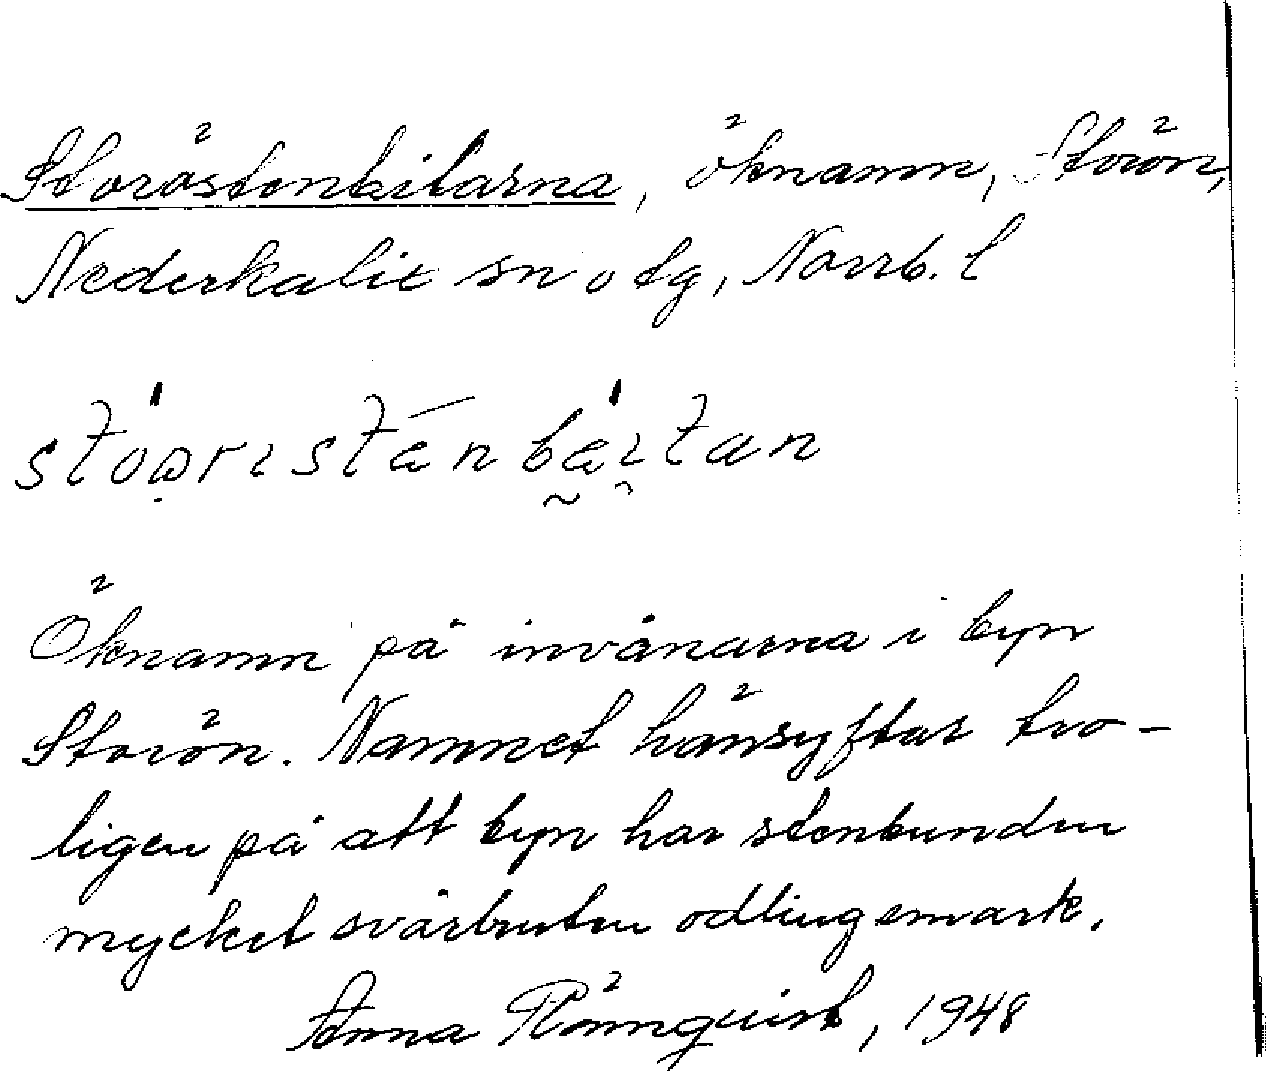 Storöstenbitarna, öknamn, Storön,
Nederkalix sn o tg, Norrb. l
Öknamn på invånarna i byn
Storön. Namnet hänsyftar tro-
ligen på att byn har stenbunden
mycket svårbruten odlingsmark.
Anna Rönnquist, 1948